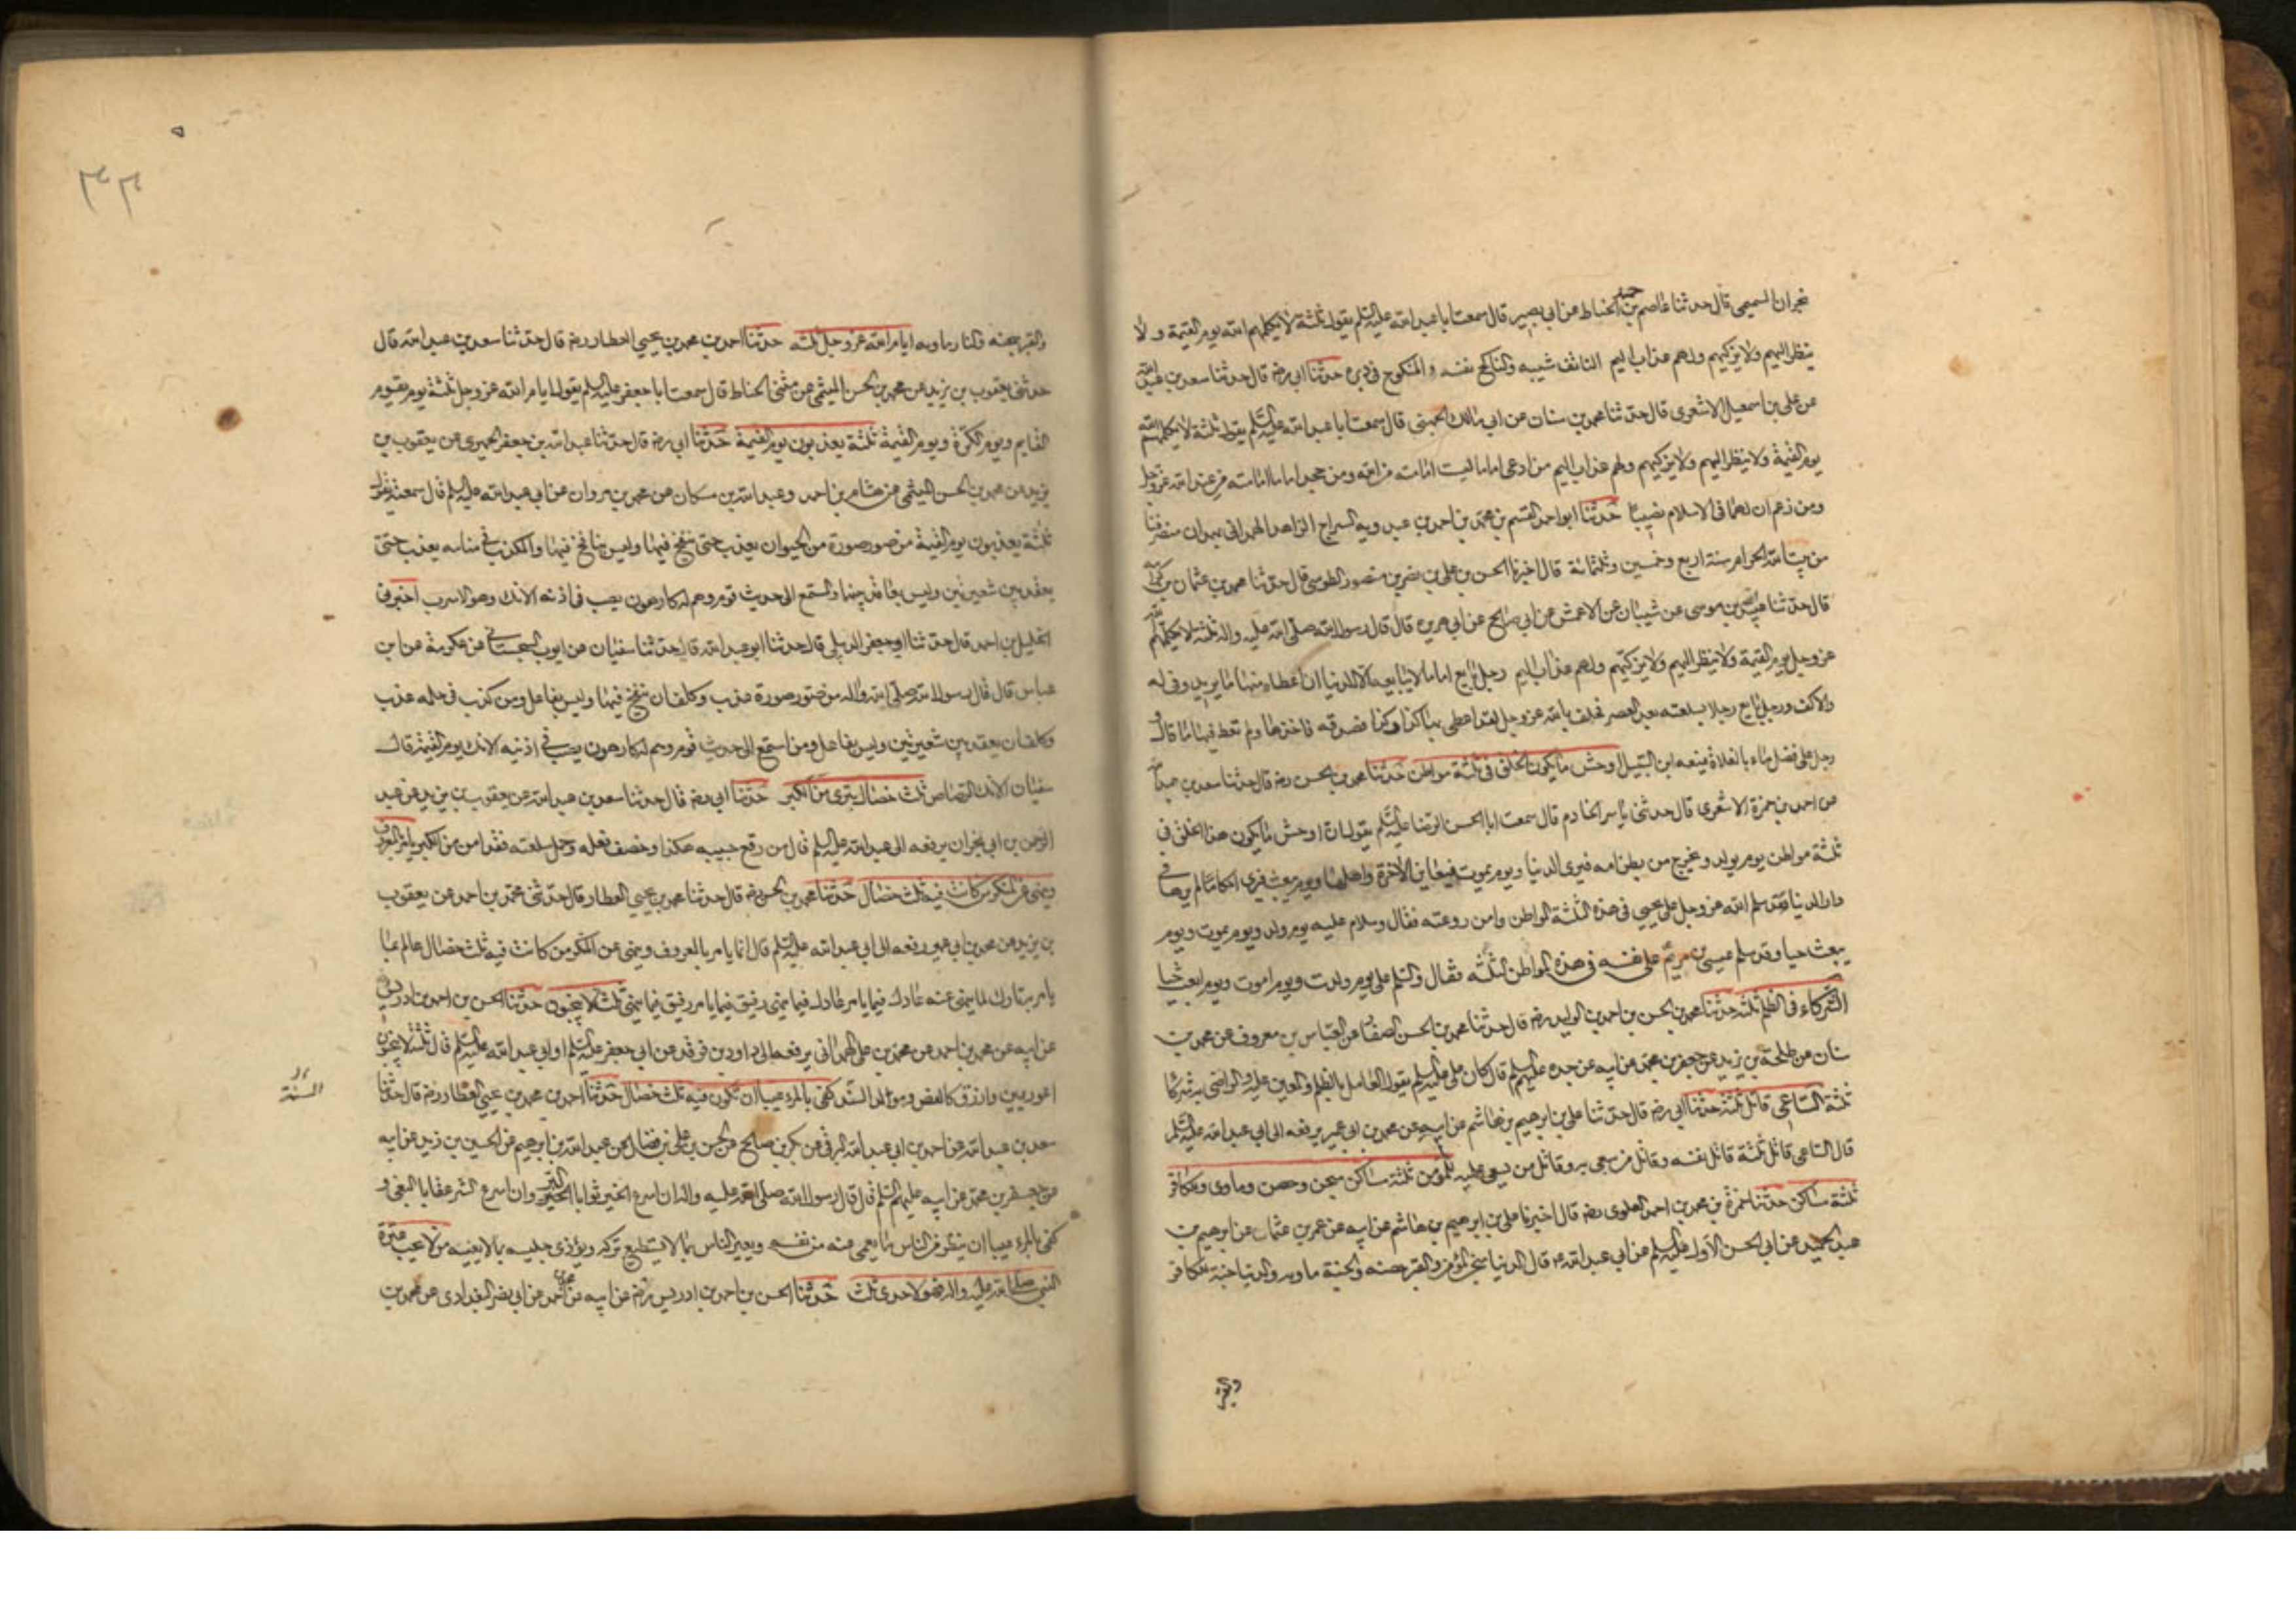 نجران التميمي قال حدثنا عاصم بن حميد الحناط عن ابي بصير قال سمعت ابا عبد الله عليه السلم يقول ثلثة لا يكلمهم الله يوم القيمة ولا
ينظر اليهم ولا يزكيهم ولهم عذاب اليم الناتف شيبه والناكح نفسه والمنكوح في دبره حدثنا ابي رضه قال حدثنا سعد بن عبد الله
عن علي بن اسمعيل الاشعري قال حدثنا محمد بن سنان عن ابي مالك الجهني قال سمعت ابا عبد الله عليه السلم يقول ثلثة لا يكلمهم الله
يوم القيمة ولا ينظر اليهم ولا يزكيهم ولهم عذاب اليم من ادعى اماما ليست امامته من الله ومن جحد اماما امامته من عند الله عز وجل
ومن زعم ان لهما في الاسلام نصيبا حدثنا ابو احمد القسم بن محمد بن احمد بن عبدويه السراج الزاهد الهمداني بهمدان منصرفنا
من بيت الله الحرام سنة اربع وخمسين وثلثمائة قال اخبرنا الحسن بن علي بن نصر بن منصور الطوسي قال حدثنا محمد بن عثمان بن كرامة
قال حدثنا عبيد الله بن موسى عن شيبان عن الاعمش عن ابي صالح عن ابي هريرة قال قال رسول الله صلى الله عليه واله ثلثة لا يكلمهم الله
عز وجل يوم القيمة ولا ينظر اليهم ولا يزكيهم ولهم عذاب اليم رجل بايع اماما لا يبايعه الا للدنيا ان اعطاه منها ما يريد وفى له
والا كف ورجل بايع رجلا بسلعته بعد العصر فحلف بالله عز وجل لقد اعطى بها كذا وكذا فصدقه فاخذها ولم يعط فيها ما قال و
رجل على فضل ماء بالفلاة يمنعه ابن السبيل اوحش ما يكون الخلق في ثلثة مواطن حدثنا محمد بن الحسن رضه قال حدثنا سعد بن عبد الله
عن احمد بن حمزة الاشعري قال حدثني ياسر الخادم قال سمعت ابا الحسن الرضا عليه السلم يقول ان اوحش ما يكون هذا الخلق في
ثلثة مواطن يوم يولد ويخرج من بطن امه فيرى الدنيا ويوم يموت فيعاين الاخرة واهلها ويوم يبعث فيرى احكاما لم يرها في
دار الدنيا وقد سلم الله عز وجل على يحيى في هذه الثلثة المواطن وامن روعته فقال وسلام عليه يوم ولد ويوم يموت ويوم
يبعث حيا وقد سلم عيسى بن مريم على نفسه في هذه المواطن الثلثة فقال والسلم علي يوم ولدت ويوم اموت ويوم ابعث حيا
الشركاء في الظلم ثلثة حدثنا محمد بن الحسن بن احمد بن الوليد رضه قال حدثنا محمد بن الحسن الصفار عن العباس بن معروف عن محمد بن
سنان عن طلحة بن زيد عن جعفر بن محمد عن ابيه عن جده عليهم السلم قال كان علي عليه السلم يقول العامل بالظلم والمعين عليه والراضي به شركا
ثلثة الساعي قاتل ثلثة حدثنا ابي رضه قال حدثنا علي بن ابرهيم بن هاشم عن ابيه عن محمد بن ابي عمير يرفعه الى ابي عبد الله عليه السلم
قال الساعي قاتل ثلثة قاتل نفسه وقاتل من سعى به وقاتل من يسعى عليه للمؤمن ثلثة مساكن سجن وحصن وماوى وللكافر
ثلثة مساكن حدثنا حمزة بن محمد بن احمد العلوي رضه قال اخبرنا علي بن ابرهيم بن هاشم عن ابيه عن عمرو بن عثمان عن ابرهيم بن
عبد الحميد عن ابي الحسن الاول عليه السلم عن ابي عبد الله ع قال الدنيا سجن المؤمن والقبر حصنه والجنة ماويه والدنيا جنة الكافر
والقبر
والقبر سجنه والنار ماويه ايام الله عز وجل ثلثه حدثنا احمد بن محمد بن يحيى العطار رضه قال حدثنا سعد بن عبد الله قال
حدثني يعقوب بن يزيد عن محمد بن الحسن الميثمي عن مثنى الحناط قال سمعت ابا جعفر عليه السلم يقول ايام الله عز وجل ثلثة يوم يقوم
القايم ويوم الكرة ويوم القيمة ثلثة يعذبون يوم القيمة حدثنا ابي رضه قال حدثنا عبد الله بن جعفر الحميري عن يعقوب بن
يزيد عن محمد بن الحسن الميثمي عن هشام بن احمد وعبد الله بن مسكان عن محمد بن مروان عن ابي عبد الله عليه السلم قال سمعته يقول
ثلثة يعذبون يوم القيمة من صور صورة من الحيوان يعذب حتى ينفخ فيها وليس بنافخ فيها والمكذب في منامه يعذب حتى
يعقد بين شعيرتين وليس بعاقد بينهما والمستمع الى حديث قوم وهم له كارهون يصب في اذنه الانك وهو الاسرب اخبرني
الخليل بن احمد قال حدثنا ابو جعفر الدبيلي قال حدثنا ابو عبد الله قال حدثنا سفيان عن ايوب السجستاني عن عكرمة عن ابن
عباس قال قال رسول الله صلى الله واله من صور صورة عذب وكلف ان ينفخ فيها وليس بفاعل ومن كذب في حلمه عذب
وكلف ان يعقد بين شعيرتين وليس بفاعل ومن استمع الى حديث قوم وهم له كارهون يصب في اذنيه الانك يوم القيمة قال
سفيان الانك الرصاص ثلث خصال تبرى من الكبر حدثنا ابي رضه قال حدثنا سعد بن عبد الله عن يعقوب بن يزيد عن عبد
الرحمن بن ابي نجران يرفعه الى عبد الله عليه السلم قال من رقع جيبه هكذا وخصف نعله وحمل سلعته فقد امن من الكبر يامر بالمعروف
وينهى عن المنكر من كانت فيه ثلث خصال حدثنا محمد بن الحسن رضه قال حدثنا محمد بن يحيى العطار قال حدثني محمد بن احمد عن يعقوب
بن يزيد عن محمد بن ابي عمير رفعه الى ابي عبد الله عليه السلم قال انما يامر بالمعروف وينهى عن المنكر من كانت فيه ثلث خصال عالم بما
يامر به تارك لما ينهى عنه عادل فيما يامر عادل فيما ينهى رفيق فيما يامر رفيق فيما ينهى ثلث لا ينجبون حدثنا الحسن بن احمد بن ادريس
عن ابيه عن محمد بن احمد عن محمد بن علي الهمداني يرفعه الى داود بن فرقد عن ابي جعفر عليه السلم او ابي عبد الله عليه السلم قال ثلثة لا ينجبون
اعور يمين وازرق كالفص ومولد السند كفى بالمرء عيبا ان يكون فيه ثلث خصال حدثنا احمد بن محمد بن يحيى العطار رضه قال حدثنا
السنة
سعد بن عبد الله عن احمد بن ابي عبد الله البرقي عن بكر بن صالح عن الحسن بن علي بن فضال عن عبد الله بن ابرهيم عن الحسين بن زيد عن ابيه
عن جعفر بن محمد عن ابيه عليهم السلم قال قال رسول الله صلى الله عليه واله ان اسرع الخير ثوابا البر وان اسرع الشر عقابا البغي و
كفى بالمرء عيبا ان ينظر من الناس ما يعمى عنه من نفسه ويعير الناس بما لا يستطيع تركه ويؤذي جليسه بما لا يعنيه من لا يحب عترة
النبي صلى الله عليه واله فهو لاحدى ثلث حدثنا الحسن بن احمد بن ادريس رضه عن ابيه عن محمد بن احمد عن ابي نصر البغدادي عن محمد بن